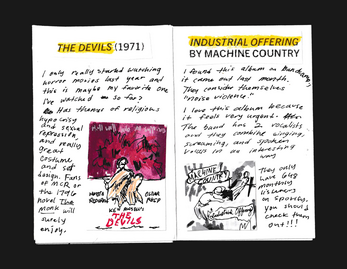 THE DEVILS (1971)
I only really started watching
horror movies last year and
this is maybe my favorite one
I've watched so far?
Has themes of religious
hypocrisy
and sexual
repression,
and really
great
costume
and set
design. Fans
of MCR or
the 1796
novel The
Monk will
surely
enjoy.
VANESSA
REDGRAVE
OLIVER
REED
KEN RUSSELL'S
THE
DEVILS
INDUSTRIAL OFFERING
BY MACHINE COUNTRY
I found this album on Bandcamp,
it came out last month.
They consider themselves
"noise violence."
I love this album because
it feels very urgent.
The band has 2 vocalists
and they combine singing,
screaming, and spoken
words in an interesting
way
MACHINE
COUNTRY
Industrial Offering
They only
have 648
monthly
listeners
on Spotify,
you should
check them
out!!!